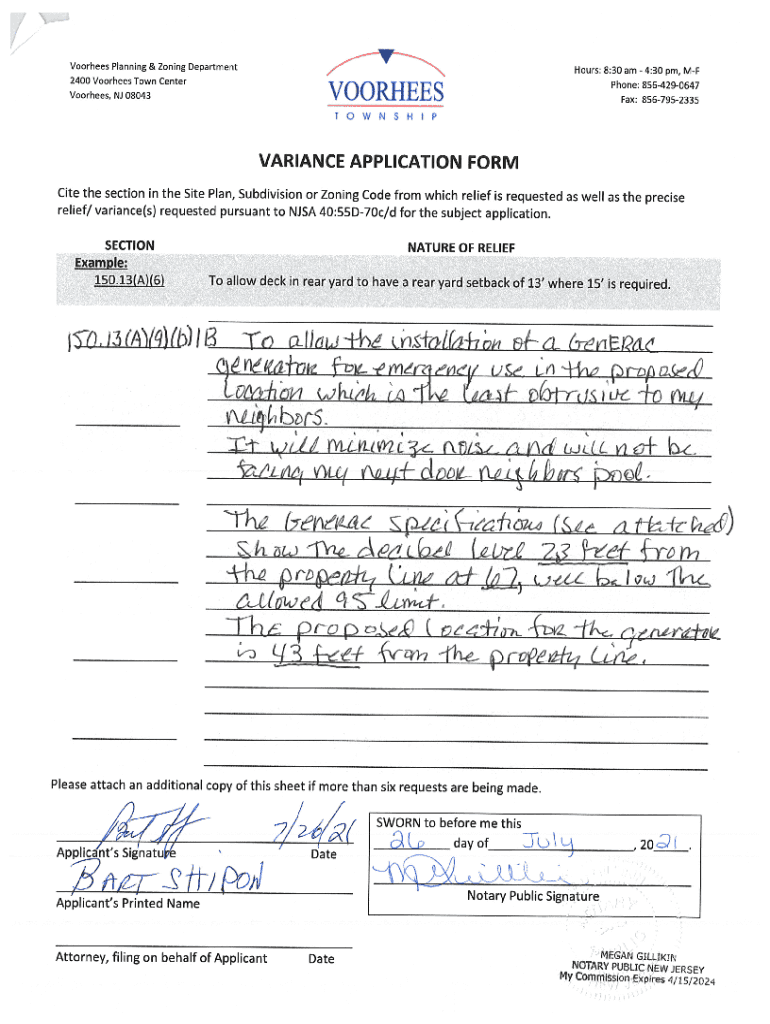 Voorhees Planning & Zoning Department
2400 Voorhees Town Center
Voorhees, NJ 08043
VOORHEES
TOWNSHIP
Hours: 8:30 am - 4:30 pm, M-F
Phone: 856-429-0647
Fax: 856-795-2335
VARIANCE APPLICATION FORM
Cite the section in the Site Plan, Subdivision or Zoning Code from which relief is requested as well as the precise
relief/ variance(s) requested pursuant to NJSA 40:55D-70c/d for the subject application.
SECTION NATURE OF RELIEF
Example:
150.13(A)(6) To allow deck in rear yard to have a rear yard setback of 13' where 15' is required.
150.13(A)(9)(b)1B To allow the installation of a GenERac
generator for emergency use in the proposed
Location which is The least obtrusive to my
neighbors.
It will minimize noise and will not be
facing my next door neighbors pool.
The Generac Specifications (See attatched)
Show The decibel level 23 feet from
the property Line at 67, well below The
allowed 95 limit.
The proposed Location for the generator
is 43 feet from the property Line.
Please attach an additional copy of this sheet if more than six requests are being made.
7/26/21
Applicant's Signature Date
BART SHIPON
Applicant's Printed Name
Attorney, filing on behalf of Applicant Date
SWORN to before me this
26 day of July, 2021.
Notary Public Signature
MEGAN GILLIKIN
NOTARY PUBLIC NEW JERSEY
My Commission Expires 4/15/2024